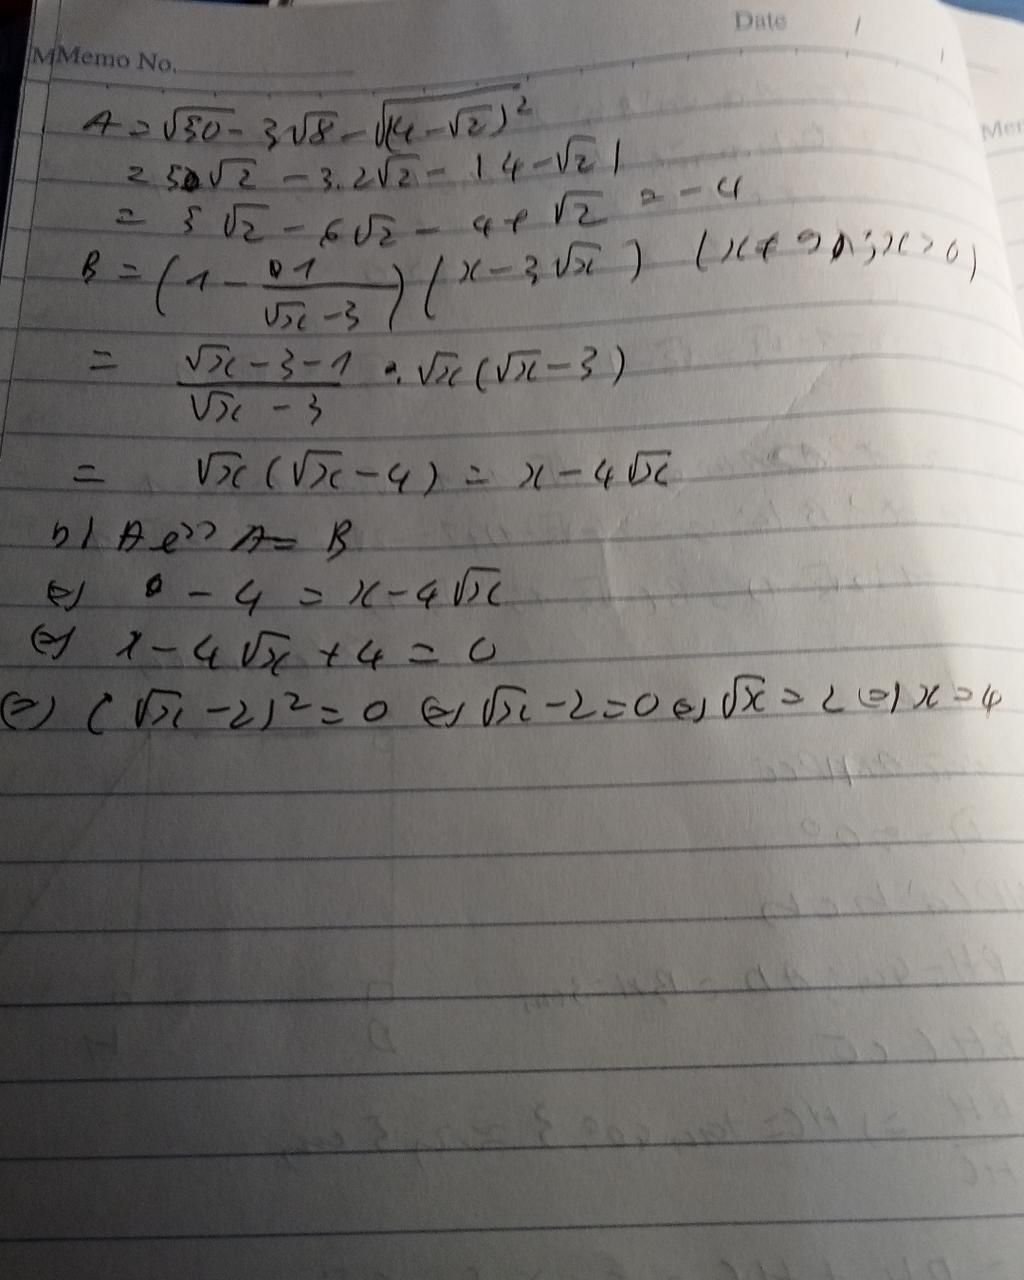 Date / /
Memo No.
A = √50 - 3√8 - √(4 - √2)²
= 5√2 - 3.2√2 - |4 - √2|
= 5√2 - 6√2 - 4 + √2 = -4
B = (1 - 1/(√x - 3)) (x - 3√x) (x ≠ 9; x > 0)
= (√x - 3 - 1)/(√x - 3) . √x(√x - 3)
= √x(√x - 4) = x - 4√x
b) A = B
⇔ -4 = x - 4√x
⇔ x - 4√x + 4 = 0
⇔ (√x - 2)² = 0 ⇔ √x - 2 = 0 ⇔ √x = 2 ⇔ x = 4